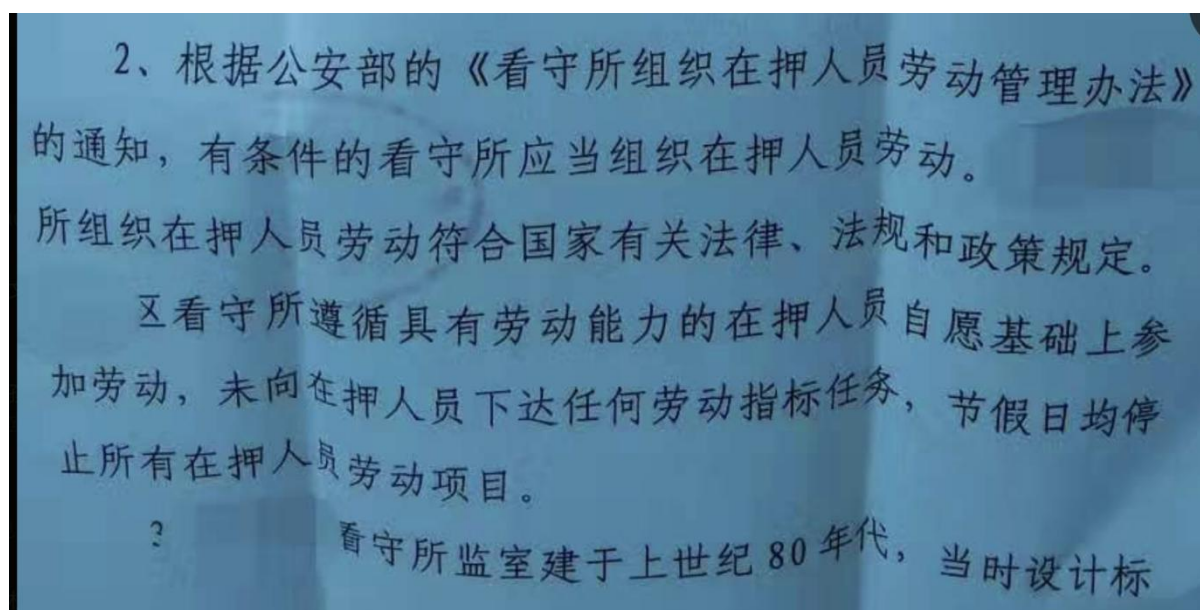 2、根据公安部的《看守所组织在押人员劳动管理办法》
的通知，有条件的看守所应当组织在押人员劳动。
所组织在押人员劳动符合国家有关法律、法规和政策规定。
区看守所遵循具有劳动能力的在押人员自愿基础上参
加劳动，未向在押人员下达任何劳动指标任务，节假日均停
止所有在押人员劳动项目。
看守所监室建于上世纪80年代，当时设计标